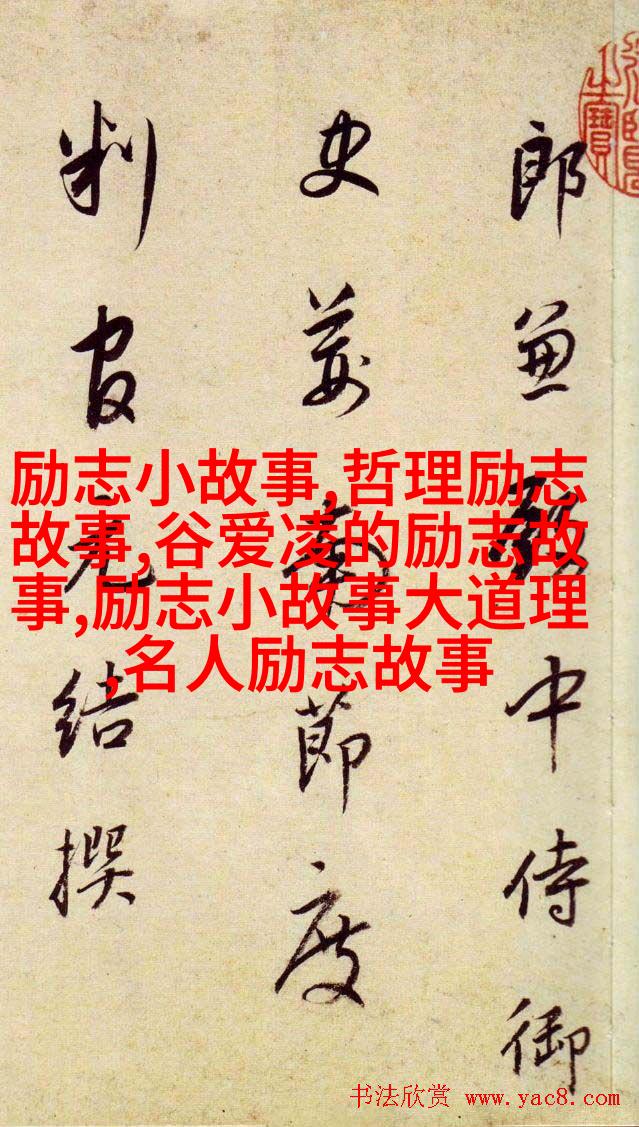 郎兼殿中侍御
史荆南節度
判官元结撰
励志小故事,哲理励志
故事,谷爱凌的励志故
事,励志小故事大道理
,名人励志故事
书法欣赏 www.yac8.com